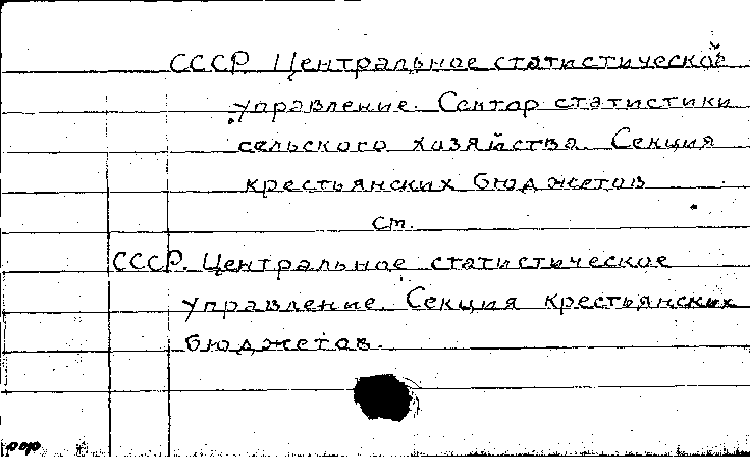 СССР. Центральное статистическое
управление. Сектор статистики
сельского хозяйства. Секция
крестьянских бюджетов
см.
СССР. Центральное статистическое
управление. Секция крестьянских
бюджетов.